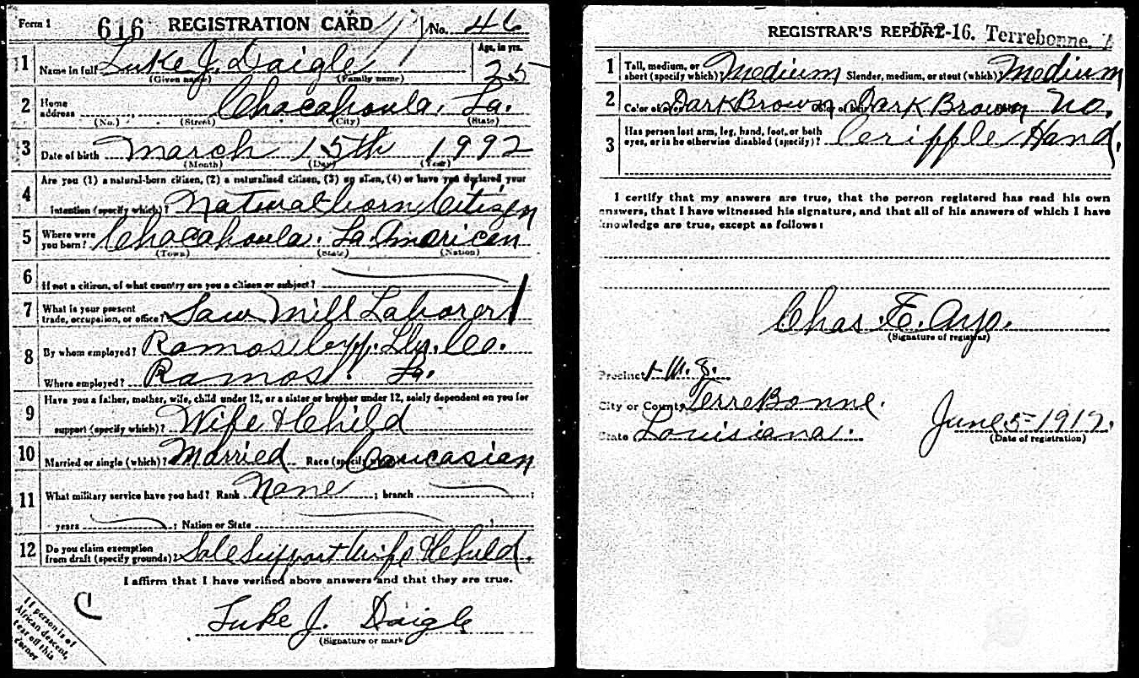 Form 1 616 REGISTRATION CARD No. 46
1 Name in full Luke J. Daigle Age, in yrs. 25
(Given name) (Family name)
2 Home address Chacahoula, La.
(No.) (Street) (City) (State)
3 Date of birth March 15th 1992
(Month) (Day) (Year)
4 Are you (1) a natural-born citizen, (2) a naturalized citizen, (3) an alien, (4) or have you declared your
intention (specify which)? Natural born Citizen
5 Where were you born? Chacahoula. La. American
(Town) (State) (Nation)
6 If not a citizen, of what country are you a citizen or subject?
7 What is your present trade, occupation, or office? Saw Mill Laborer
8 By whom employed? Ramos Cyp. Co.
Where employed? Ramos. La.
9 Have you a father, mother, wife, child under 12, or a sister or brother under 12, solely dependent on you for
support (specify which)? Wife & Child
10 Married or single (which)? Married Race (specify which) Caucasian
11 What military service have you had? Rank None ; branch ;
years ; Nation or State
12 Do you claim exemption from draft (specify grounds)? Sole Support Wife & Child.
I affirm that I have verified above answers and that they are true.
C
Luke J. Daigle
(Signature or mark)
If person is of
African descent,
tear off this
corner
REGISTRAR'S REPORT -16. Terrebonne,
1 Tall, medium, or short (specify which)? Medium Slender, medium, or stout (which)? Medium
2 Color of Dark Brown Dark Brown No.
3 Has person lost arm, leg, hand, foot, or both
eyes, or is he otherwise disabled (specify)? Cripple Hand.
I certify that my answers are true, that the person registered has read his own
answers, that I have witnessed his signature, and that all of his answers of which I have
knowledge are true, except as follows:
Chas. E. Ayo.
(Signature of registrar)
Precinct
City or County TerreBonne.
State Louisiana.
June 5-1917.
(Date of registration)